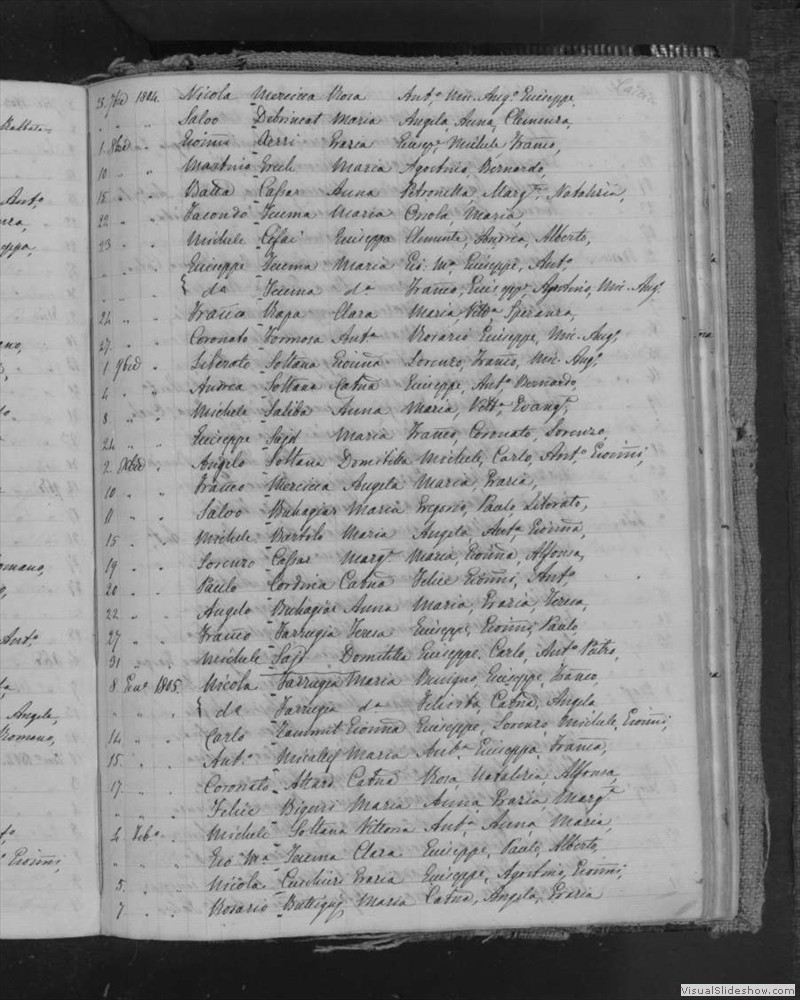 23. 7bre 1804. Nicola Mercieca Rosa Anto. Min. Ango. Giuseppe,
" " Salvo Debrincat Maria Angela, Anna, Clemenza,
1. 8bre " Gioñni Axerri Grazia Giusepe, Michele Franco,
10 " " Martino Grech Maria Agostino, Bernardo,
15 " " Batta Cassar Anna Petronilla, Margta. Natalizia,
22 " " Facondo Teuma Maria Orsola, Maria,
23 " " Michele Cefai Giuseppa Clemente, Andrea, Alberto,
" " Giuseppe Teuma Maria Gio: Ma. Giuseppe, Anto.
" " { do Teuma da Franco, Giuseppe, Agostino, Min. Ango.
24 " " Franco Rapa Clara Maria, Vitta. Speranza,
27. " " Coronato Formosa Anta. Rosario Giuseppe, Min. Ango.
1. 9bre " Liberato Soltana Gioñna Lorenzo, Franco, Min. Ango.
4 " " Andrea Soltana Catña Giuseppe, Anto. Bernardo,
8. " " Michele Saliba Anna Maria, Vitta. Evangta.
24 " " Giuseppe Sajd Maria Franco, Coronato, Lorenzo,
2. Xbre " Angelo Soltana Domitilla Michele, Carlo, Anto. Gioñni,
10 " " Franco Mercieca Angela Maria, Grazia,
11 " " Salvo Buhagiar Maria Gregorio, Paolo, Liborato,
15 " " Michele Bartolo Maria Angela, Anta. Gioñna,
19 " " Lorenzo Cassar Margta Maria, Gioñna, Alfonsa,
20 " " Paulo Cordina Catña Felice Gioñni, Anto.
22 " " Angelo Buhagiar Anna Maria, Grazia, Teresa,
27 " " Franco Farrugia Teresa Giuseppe, Gioñni, Paulo,
31 " " Michele Sajd Domitilla Giuseppe, Carlo, Anto. Pietro,
8 Geno. 1805. Nicola Farrugia Maria Benigno, Giuseppe, Franco,
" " { do Farrugia da Felicita, Catña, Angela,
14 " " Carlo Zammit Gioñna Giuseppe, Lorenzo, Michele, Gioñni,
15 " " Anto. Micallef Maria Anta. Giuseppa, Franca,
17 " " Coronato Attard Catña Rosa, Natalizia, Alfonsa,
" " Felice Bigeni Maria Anna Grazia, Margta
4. Febo. " Michele Soltana Vittoria Anta. Anna, Maria,
" " Gio Ma. Teuma Clara Giuseppe, Paulo, Alberto,
5. " " Nicola Cuschieri Grazia Giuseppe, Agostino, Gioñni,
7 " " Rosario Buttigieg Maria Catña, Angela, Grazia
VisualSlideshow.com